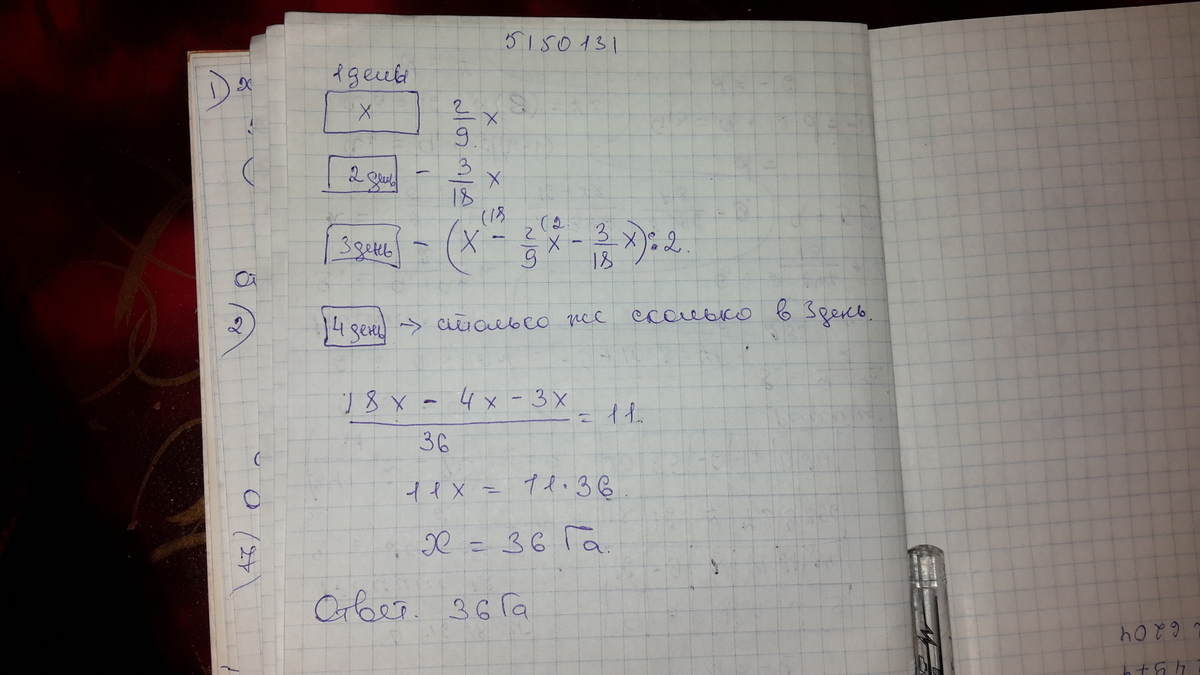 5150131
1 день
x 2/9 x
2 день - 3/18 x
3 день - (x(18 - 2/9 x(2 - 3/18 x) : 2.
4 день → столько же сколько в 3 день.
18x - 4x - 3x / 36 = 11.
11x = 11·36.
x = 36 Га.
Ответ. 36 Га
1) x
2) а
17) 0
6204